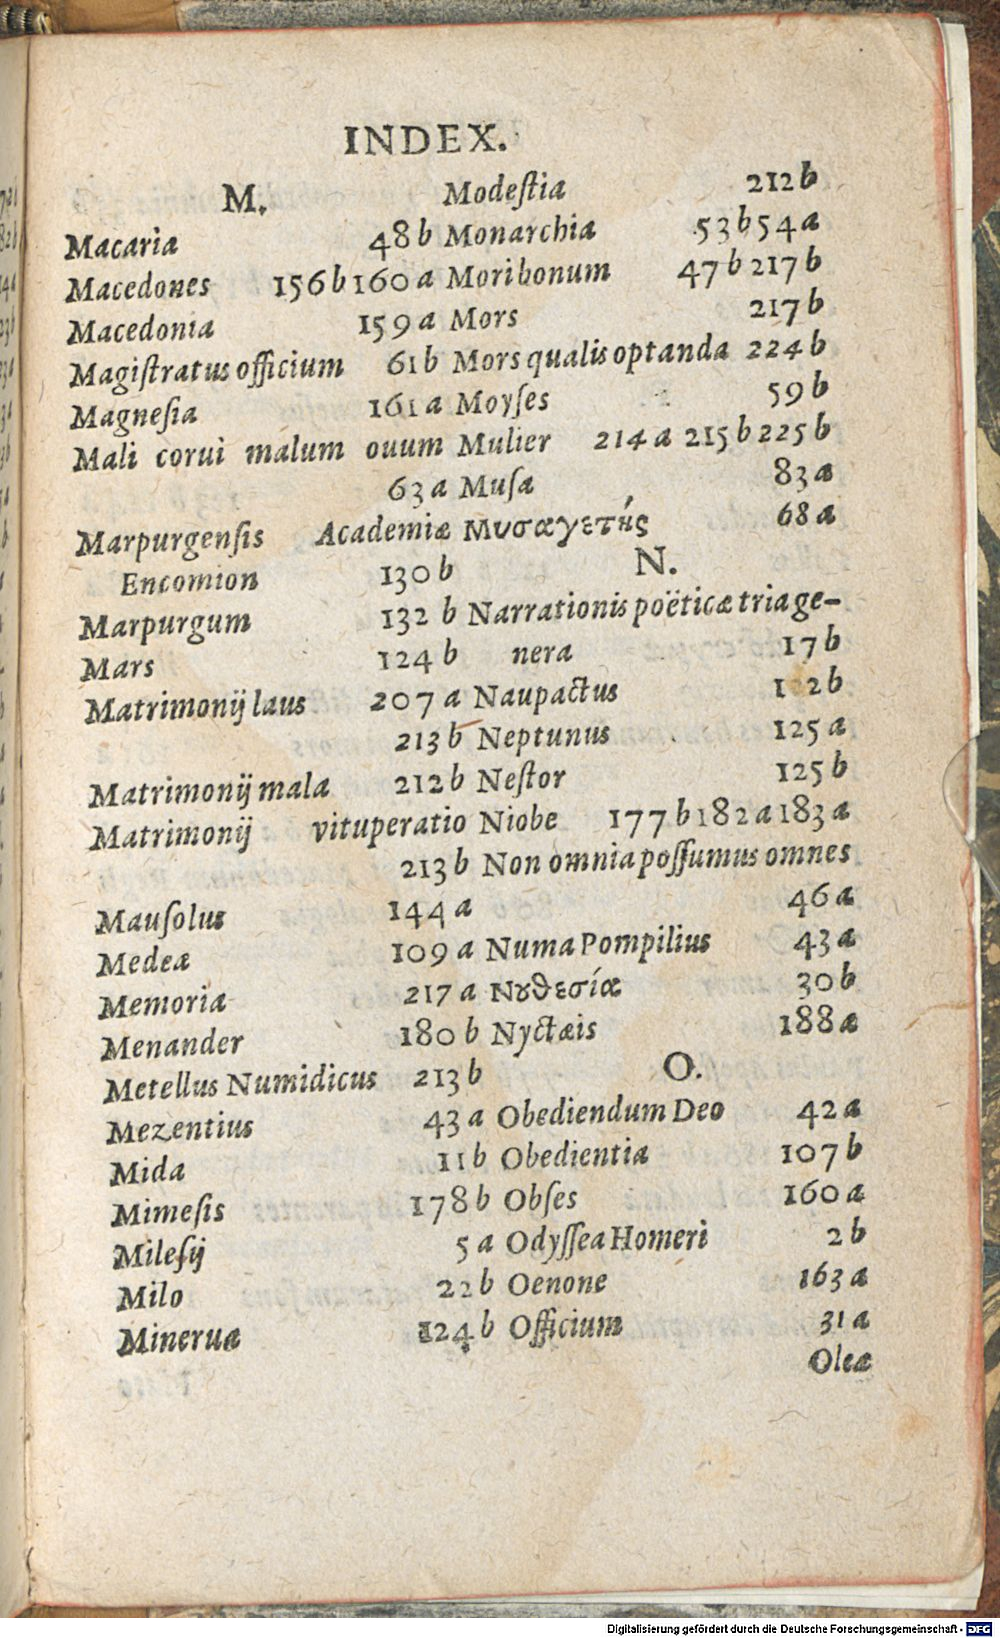 INDEX.
M.
Macaria 48 b
Macedones 156 b 160 a
Macedonia 159 a
Magiſtratus officium 61 b
Magneſia 161 a
Mali corui malum ouum
63 a
Marpurgenſis Academiæ
Encomion 130 b
Marpurgum 132 b
Mars 124 b
Matrimonij laus 207 a
213 b
Matrimonij mala 212 b
Matrimonij vituperatio
213 b
Mauſolus 144 a
Medea 109 a
Memoria 217 a
Menander 180 b
Metellus Numidicus 213 b
Mezentius 43 a
Mida 11 b
Mimeſis 178 b
Mileſij 5 a
Milo 22 b
Minerua 124 b
Modeſtia 212 b
Monarchia 53 b 54 a
Mori bonum 47 b 217 b
Mors 217 b
Mors qualis optanda 224 b
Moyſes 59 b
Mulier 214 a 215 b 225 b
Muſæ 83 a
Μυσαγετής 68 a
N.
Narrationis poëticæ tria ge-
nera 17 b
Naupactus b
Neptunus 125 a
Neſtor 125 b
Niobe 177 b 182 a 183 a
Non omnia poſſumus omnes
46 a
Numa Pompilius 43 a
Νȣθεσία 30 b
Nyctæis 188 a
O.
Obediendum Deo 42 a
Obedientia 107 b
Obſes 160 a
Odyſſea Homeri 2 b
Oenone 163 a
Officium 31 a
Oleæ
Digitalisierung gefördert durch die Deutsche Forschungsgemeinschaft - DFG